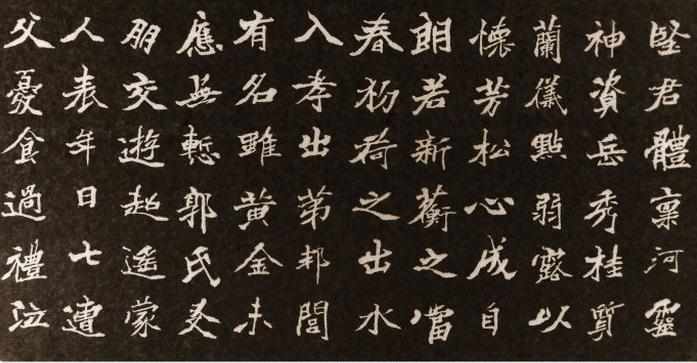 堅君體稟河靈
神資岳秀桂質
蘭儀點弱露以
懷芳松心成自
朗若新蘅之當
春初荷之出水
入孝出第邦閭
有名雖黃金未
應無慙郭氏友
朋交遊超遙蒙
人表年日七遭
父憂食過禮泣